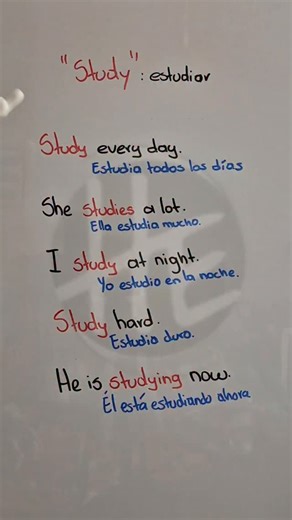 "Study": estudiar
Study every day.
Estudia todos los días
She studies a lot.
Ella estudia mucho.
I study at night.
Yo estudio en la noche.
Study hard.
Estudia duro.
He is studying now.
Él está estudiando ahora.